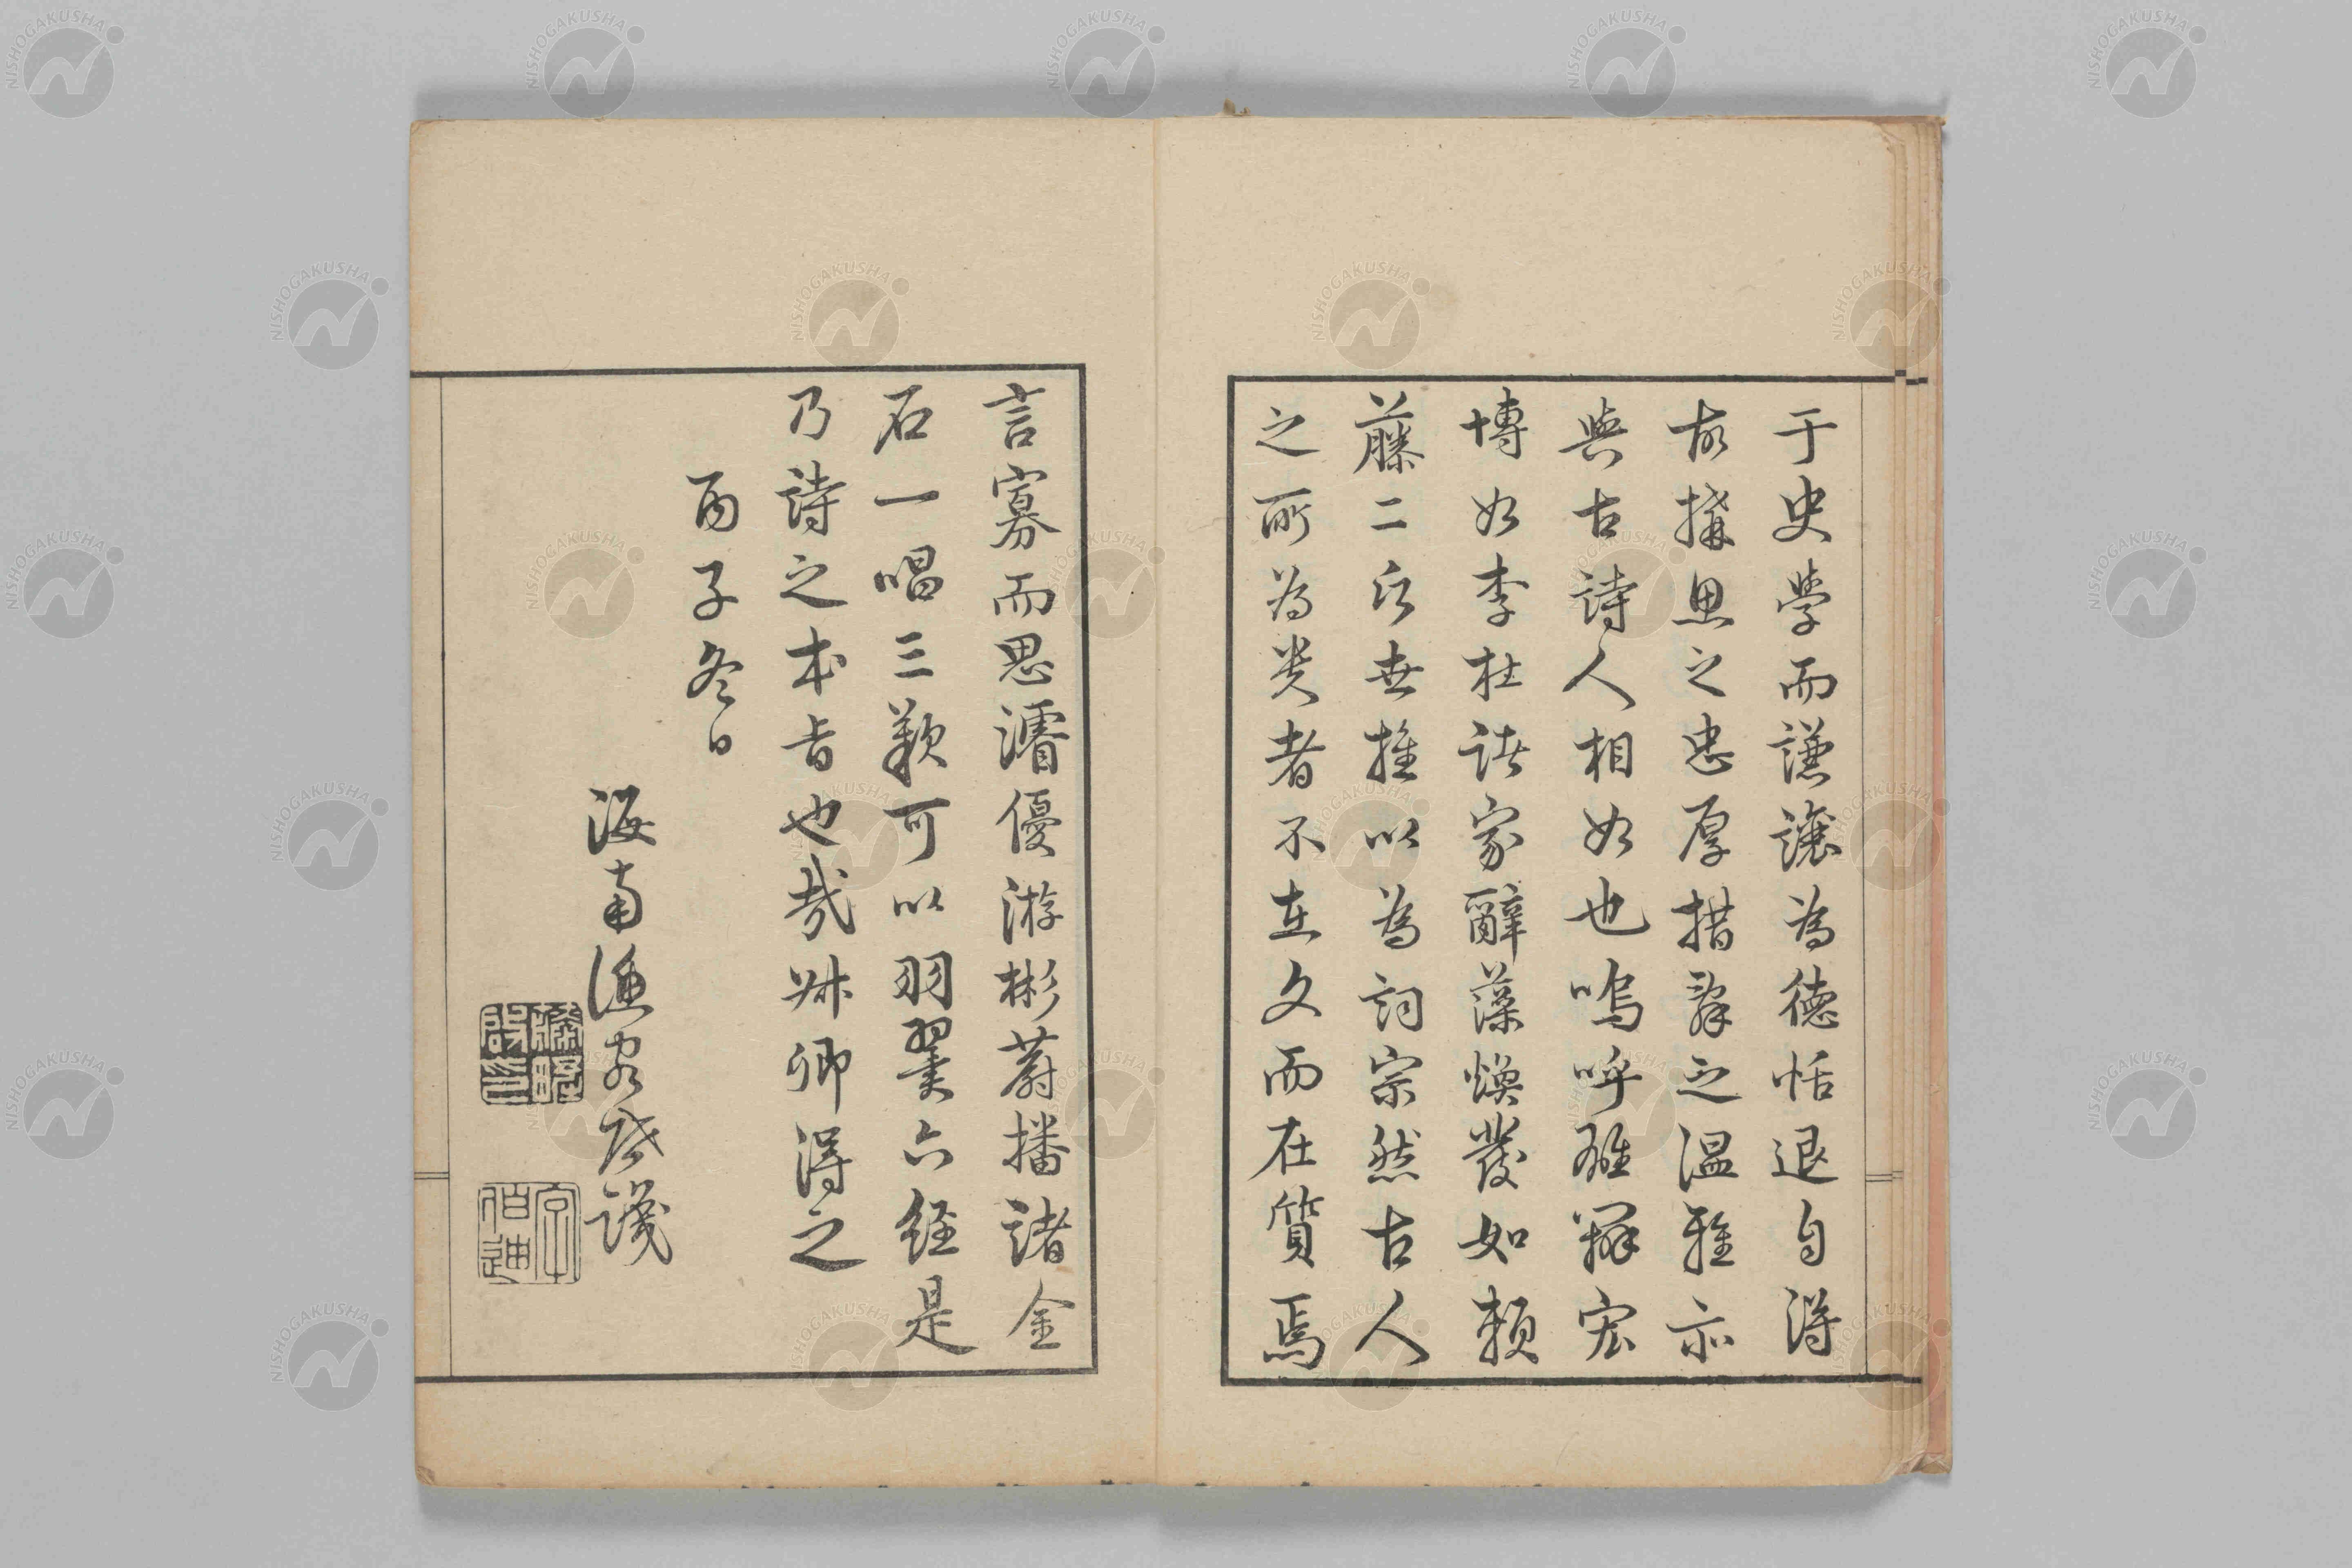 于史學而謙讓為德恬退自得
故搆思之忠厚措辭之温雅亦
與古詩人相如也嗚呼雖辯宏
博如李杜諸家辭藻煥發如賴
藤二氏世推以為詞宗然古人
之所為貴者不在文而在質焉
言寡而思濬優游彬蔚播諸金
石一唱三歎可以羽翼六經是
乃詩之本旨也哉叔卿得之
丙子冬日
海南漁客啓譔
字伯迪
NISHOGAKUSHA